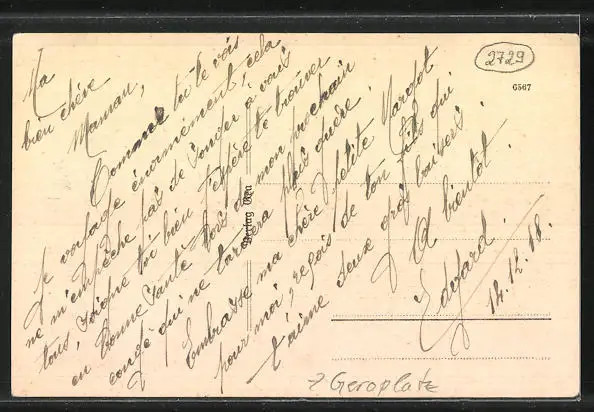 Ma
bien chère
Maman,
Comme tu le vois
je voyage énormement, cela
ne m'empêche pas de songer à vous
tous, soigne toi bien j'espère te trouver
en bonne santé lors de mon prochain
congé qui ne tardera plus guère.
Embrasse ma chère petite Margot
pour moi, reçois de ton fils qui
t'aime deux gros baisers.
A bientôt.
Edgard.
12.12.18.
2729
6567
Verlag Gea
z Geraplatz